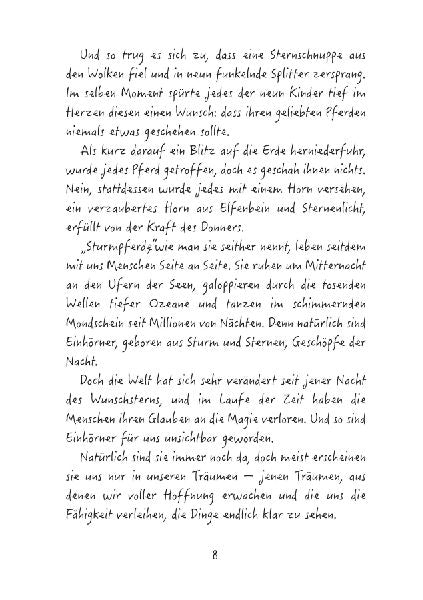 Und so trug es sich zu, dass eine Sternschnuppe aus
den Wolken fiel und in neun funkelnde Splitter zersprang.
Im selben Moment spürte jedes der neun Kinder tief im
Herzen diesen einen Wunsch: dass ihren geliebten Pferden
niemals etwas geschehen sollte.
Als kurz darauf ein Blitz auf die Erde herniederfuhr,
wurde jedes Pferd getroffen, doch es geschah ihnen nichts.
Nein, stattdessen wurde jedes mit einem Horn versehen,
ein verzaubertes Horn aus Elfenbein und Sternenlicht,
erfüllt von der Kraft des Donners.
„Sturmpferde“, wie man sie seither nennt, leben seitdem
mit uns Menschen Seite an Seite. Sie ruhen um Mitternacht
an den Ufern der Seen, galoppieren durch die tosenden
Wellen tiefer Ozeane und tanzen im schimmernden
Mondschein seit Millionen von Nächten. Denn natürlich sind
Einhörner, geboren aus Sturm und Sternen, Geschöpfe der
Nacht.
Doch die Welt hat sich sehr verändert seit jener Nacht
des Wunschsterns, und im Laufe der Zeit haben die
Menschen ihren Glauben an die Magie verloren. Und so sind
Einhörner für uns unsichtbar geworden.
Natürlich sind sie immer noch da, doch meist erscheinen
sie uns nur in unseren Träumen – jenen Träumen, aus
denen wir voller Hoffnung erwachen und die uns die
Fähigkeit verleihen, die Dinge endlich klar zu sehen.
8